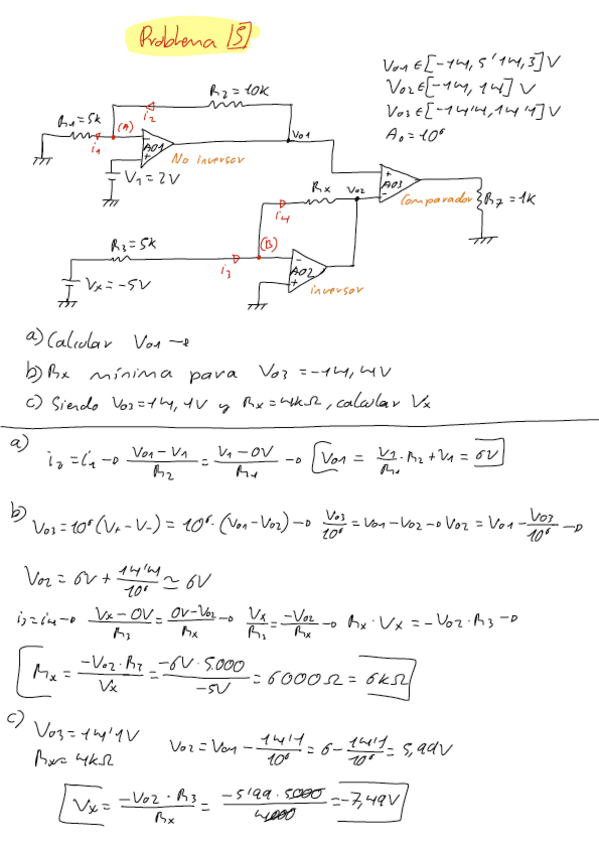 Problema 5
V01 ∈ [-14,5 ' 14,3] V
V02 ∈ [-14, 14] V
V03 ∈ [-14'4, 14'1] V
A0 = 10⁶
R2 = 10k
R1 = 5k
i2
(A)
i1
-
+
AO1
V01
No inversor
V1 = 2V
Rx
V02
i4
+
-
AO3
Comparador
R7 = 1k
R3 = 5k
(B)
i3
-
+
AO2
inversor
Vx = -5V
a) Calcular V01 →
b) Rx mínima para V03 = -14,4V
c) Siendo V03 = 14,1V y Rx = 4kΩ, calcular Vx
a)
i2 = i1 → (V01 - V1)/R2 = (V1 - 0V)/R1 → V01 = V1/R1 · R2 + V1 = 6V
b)
V03 = 10⁶(V+ - V-) = 10⁶·(V01 - V02) → V03/10⁶ = V01 - V02 → V02 = V01 - V03/10⁶ →
V02 = 6V + 14'4/10⁶ ≃ 6V
i3 = i4 → (Vx - 0V)/R3 = (0V - V02)/Rx → Vx/R3 = -V02/Rx → Rx · Vx = -V02 · R3 →
Rx = (-V02 · R3)/Vx = (-6V · 5.000)/(-5V) = 6000Ω = 6kΩ
c)
V03 = 14'1V
Rx = 4kΩ
V02 = V01 - 14'1/10⁶ = 6 - 14'1/10⁶ = 5,99V
Vx = (-V02 · R3)/Rx = (-5'99 · 5.000)/4.000 = -7,49V